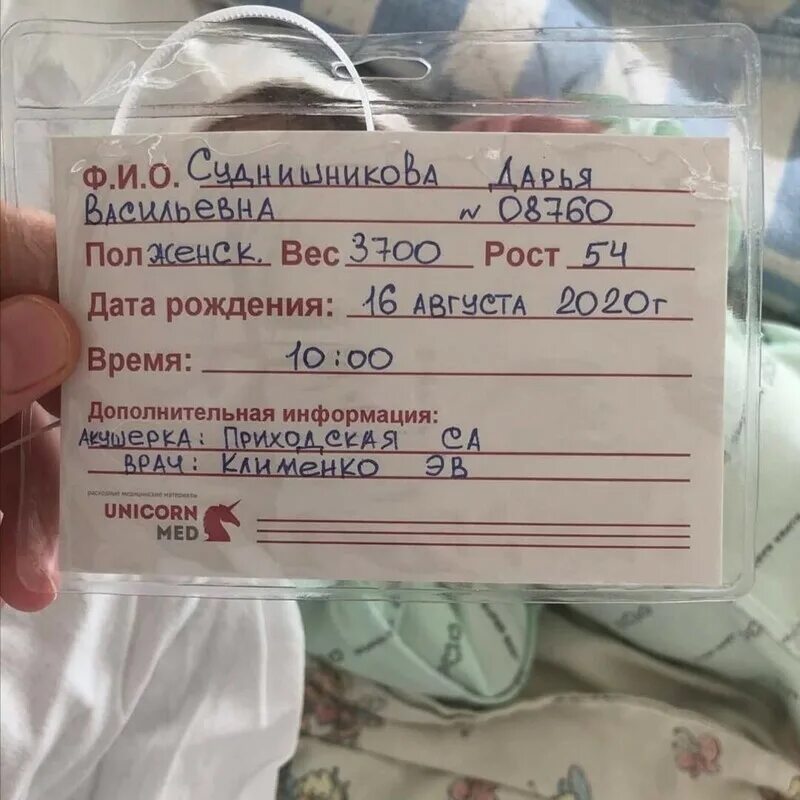 Ф.И.О. Суднишникова Дарья
Васильевна № 08760
Пол женск. Вес 3700 Рост 54
Дата рождения: 16 августа 2020г
Время: 10:00
Дополнительная информация:
Акушерка: Приходская СА
Врач: Клименко ЭВ
расходные медицинские материалы
UNICORN
MED